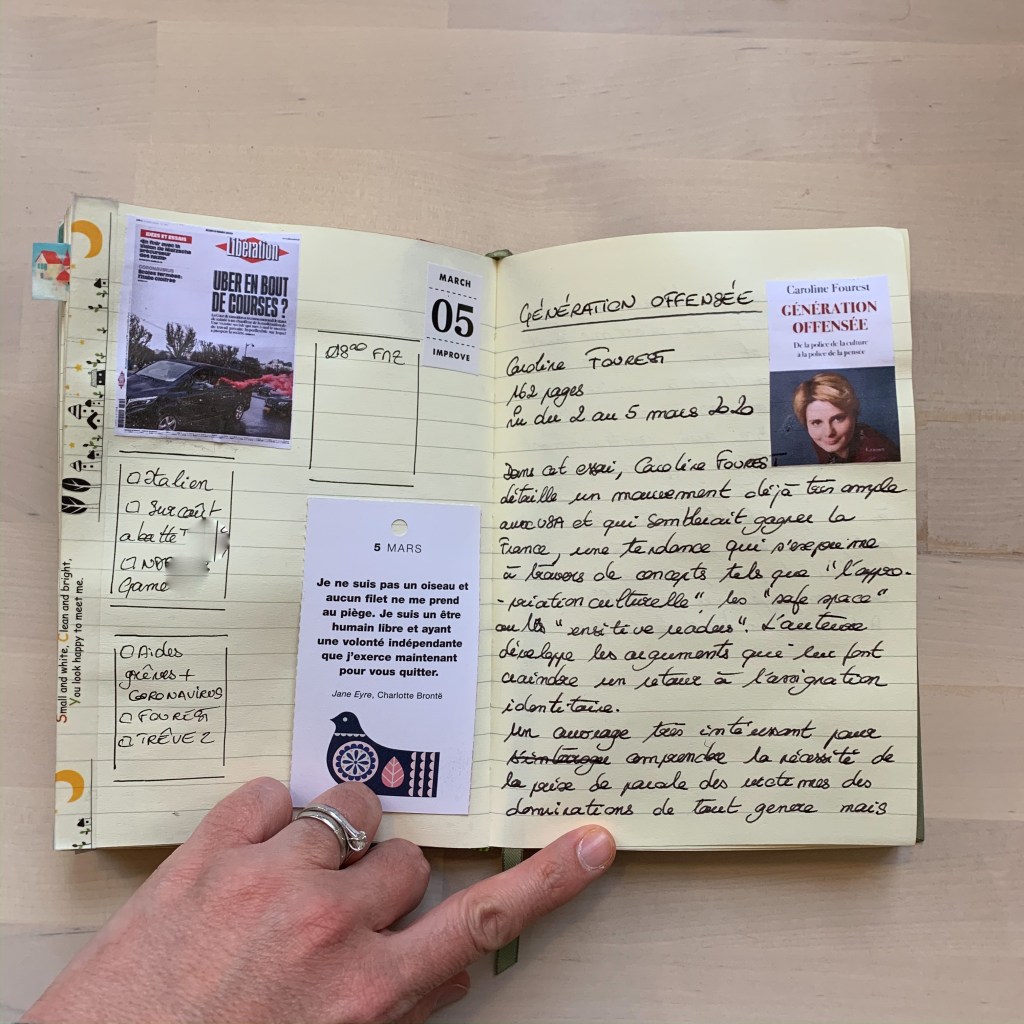 IDÉES ET ESSAIS
Libération
UBER EN BOUT
DE COURSES ?
MARCH
05
IMPROVE
Ø8⁰⁰ FNZ
□ Italien
□ Surcoût
abatt
□
Game
□ Aides
grêves +
CORONAVIRUS
□ FOUREST
□ TRÊVE 2
Small and white, Clean and bright,
You look happy to meet me.
5 MARS
Je ne suis pas un oiseau et
aucun filet ne me prend
au piège. Je suis un être
humain libre et ayant
une volonté indépendante
que j'exerce maintenant
pour vous quitter.
Jane Eyre, Charlotte Brontë
GÉNÉRATION OFFENSÉE
Caroline FOUREST
162 pages
Lu du 2 au 5 mars 2020
Caroline Fourest
GÉNÉRATION
OFFENSÉE
De la police de la culture
à la police de la pensée
Dans cet essai, Caroline FOUREST
détaille un mouvement déjà très ample
aux USA et qui semblerait gagner la
France, une tendance qui s'exprime
à travers de concepts tels que "l'appro-
-priation culturelle", les "safe space"
ou les "ensitive readers". L'auteure
développe les arguments qui lui font
craindre un retour à l'assignation
identitaire.
Un ouvrage très intéressant pour
comprendre la nécessité de
la prise de parole des victimes des
dominations de tout genre mais